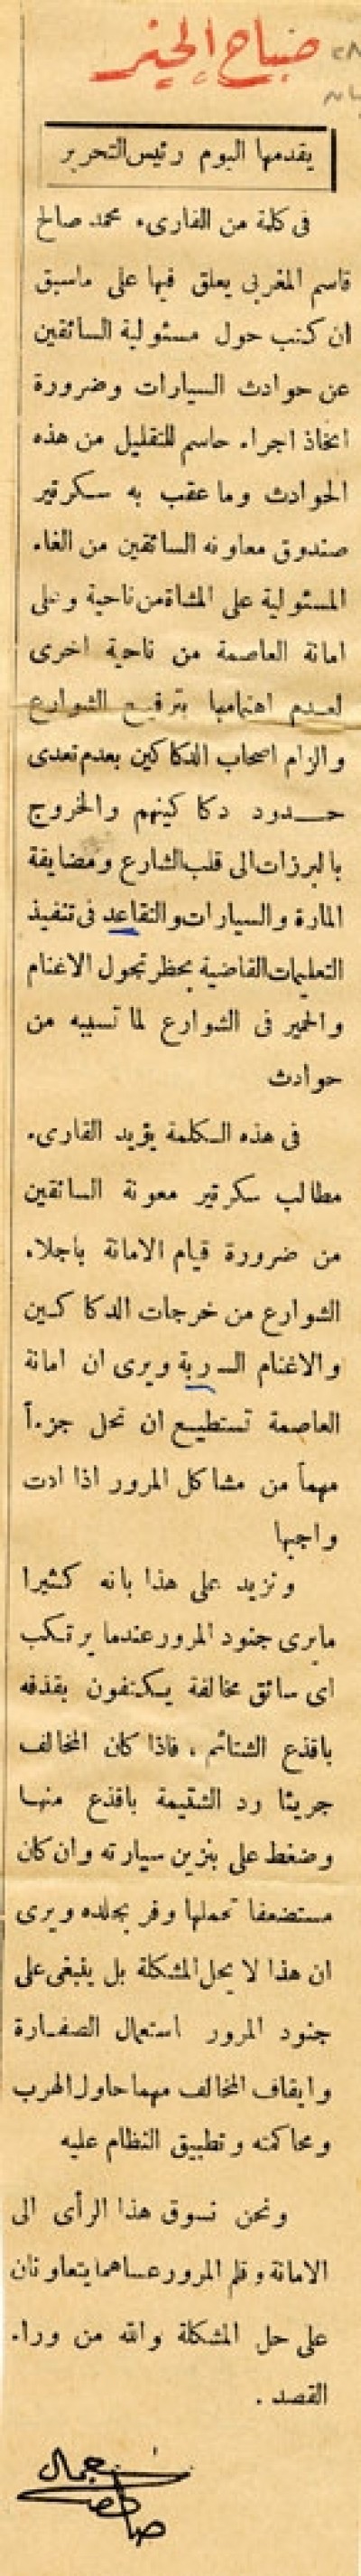 صباح الخير
يقدمها اليوم رئيس التحرير
فى كلمة من القارىء محمد صالح
قاسم المغربى يعلق فيها على ماسبق
ان كتب حول مسئولية السائقين
عن حوادث السيارات وضرورة
اتخاذ اجراء حاسم للتقليل من هذه
الحوادث وما عقب به سكرتير
صندوق معاونه السائقين من القاء
المسئولية على المشاة من ناحية وعلى
امانة العاصمة من ناحية اخرى
لعدم اهتمامها بترقيع الشوارع
والزام اصحاب الدكاكين بعدم تعدى
حدود دكاكينهم والخروج
بالبرزات الى قلب الشارع ومضايقة
المارة والسيارات والتقاعد فى تنفيذ
التعليمات القاضية بحظر تجول الاغنام
والحمير فى الشوارع لما تسببه من
حوادث
فى هذه الكلمة يؤيد القارىء
مطالب سكرتير معونة السائقين
من ضرورة قيام الامانة باجلاء
الشوارع من خرجات الدكاكين
والاغنام السربة ويرى ان امانة
العاصمة تستطيع ان تحل جزءاً
مهماً من مشاكل المرور اذا ادت
واجبها
ونزيد على هذا بانه كثيرا
مايرى جنود المرور عندما يرتكب
اى سائق مخالفة يكتفون بقذفه
باقذع الشتائم ، فاذا كان المخالف
جريئا رد الشتيمة باقذع منها
وضغط على بنزين سيارته وان كان
مستضعفا تحملها وفر بجلده ويرى
ان هذا لا يحل المشكلة بل ينبغى على
جنود المرور استعمال الصفارة
وايقاف المخالف مهما حاول الهرب
ومحاكمته وتطبيق النظام عليه
ونحن نسوق هذا الرأى الى
الامانة وقلم المرور عساهما يتعاونان
على حل المشكلة والله من وراء
القصد .
جمال